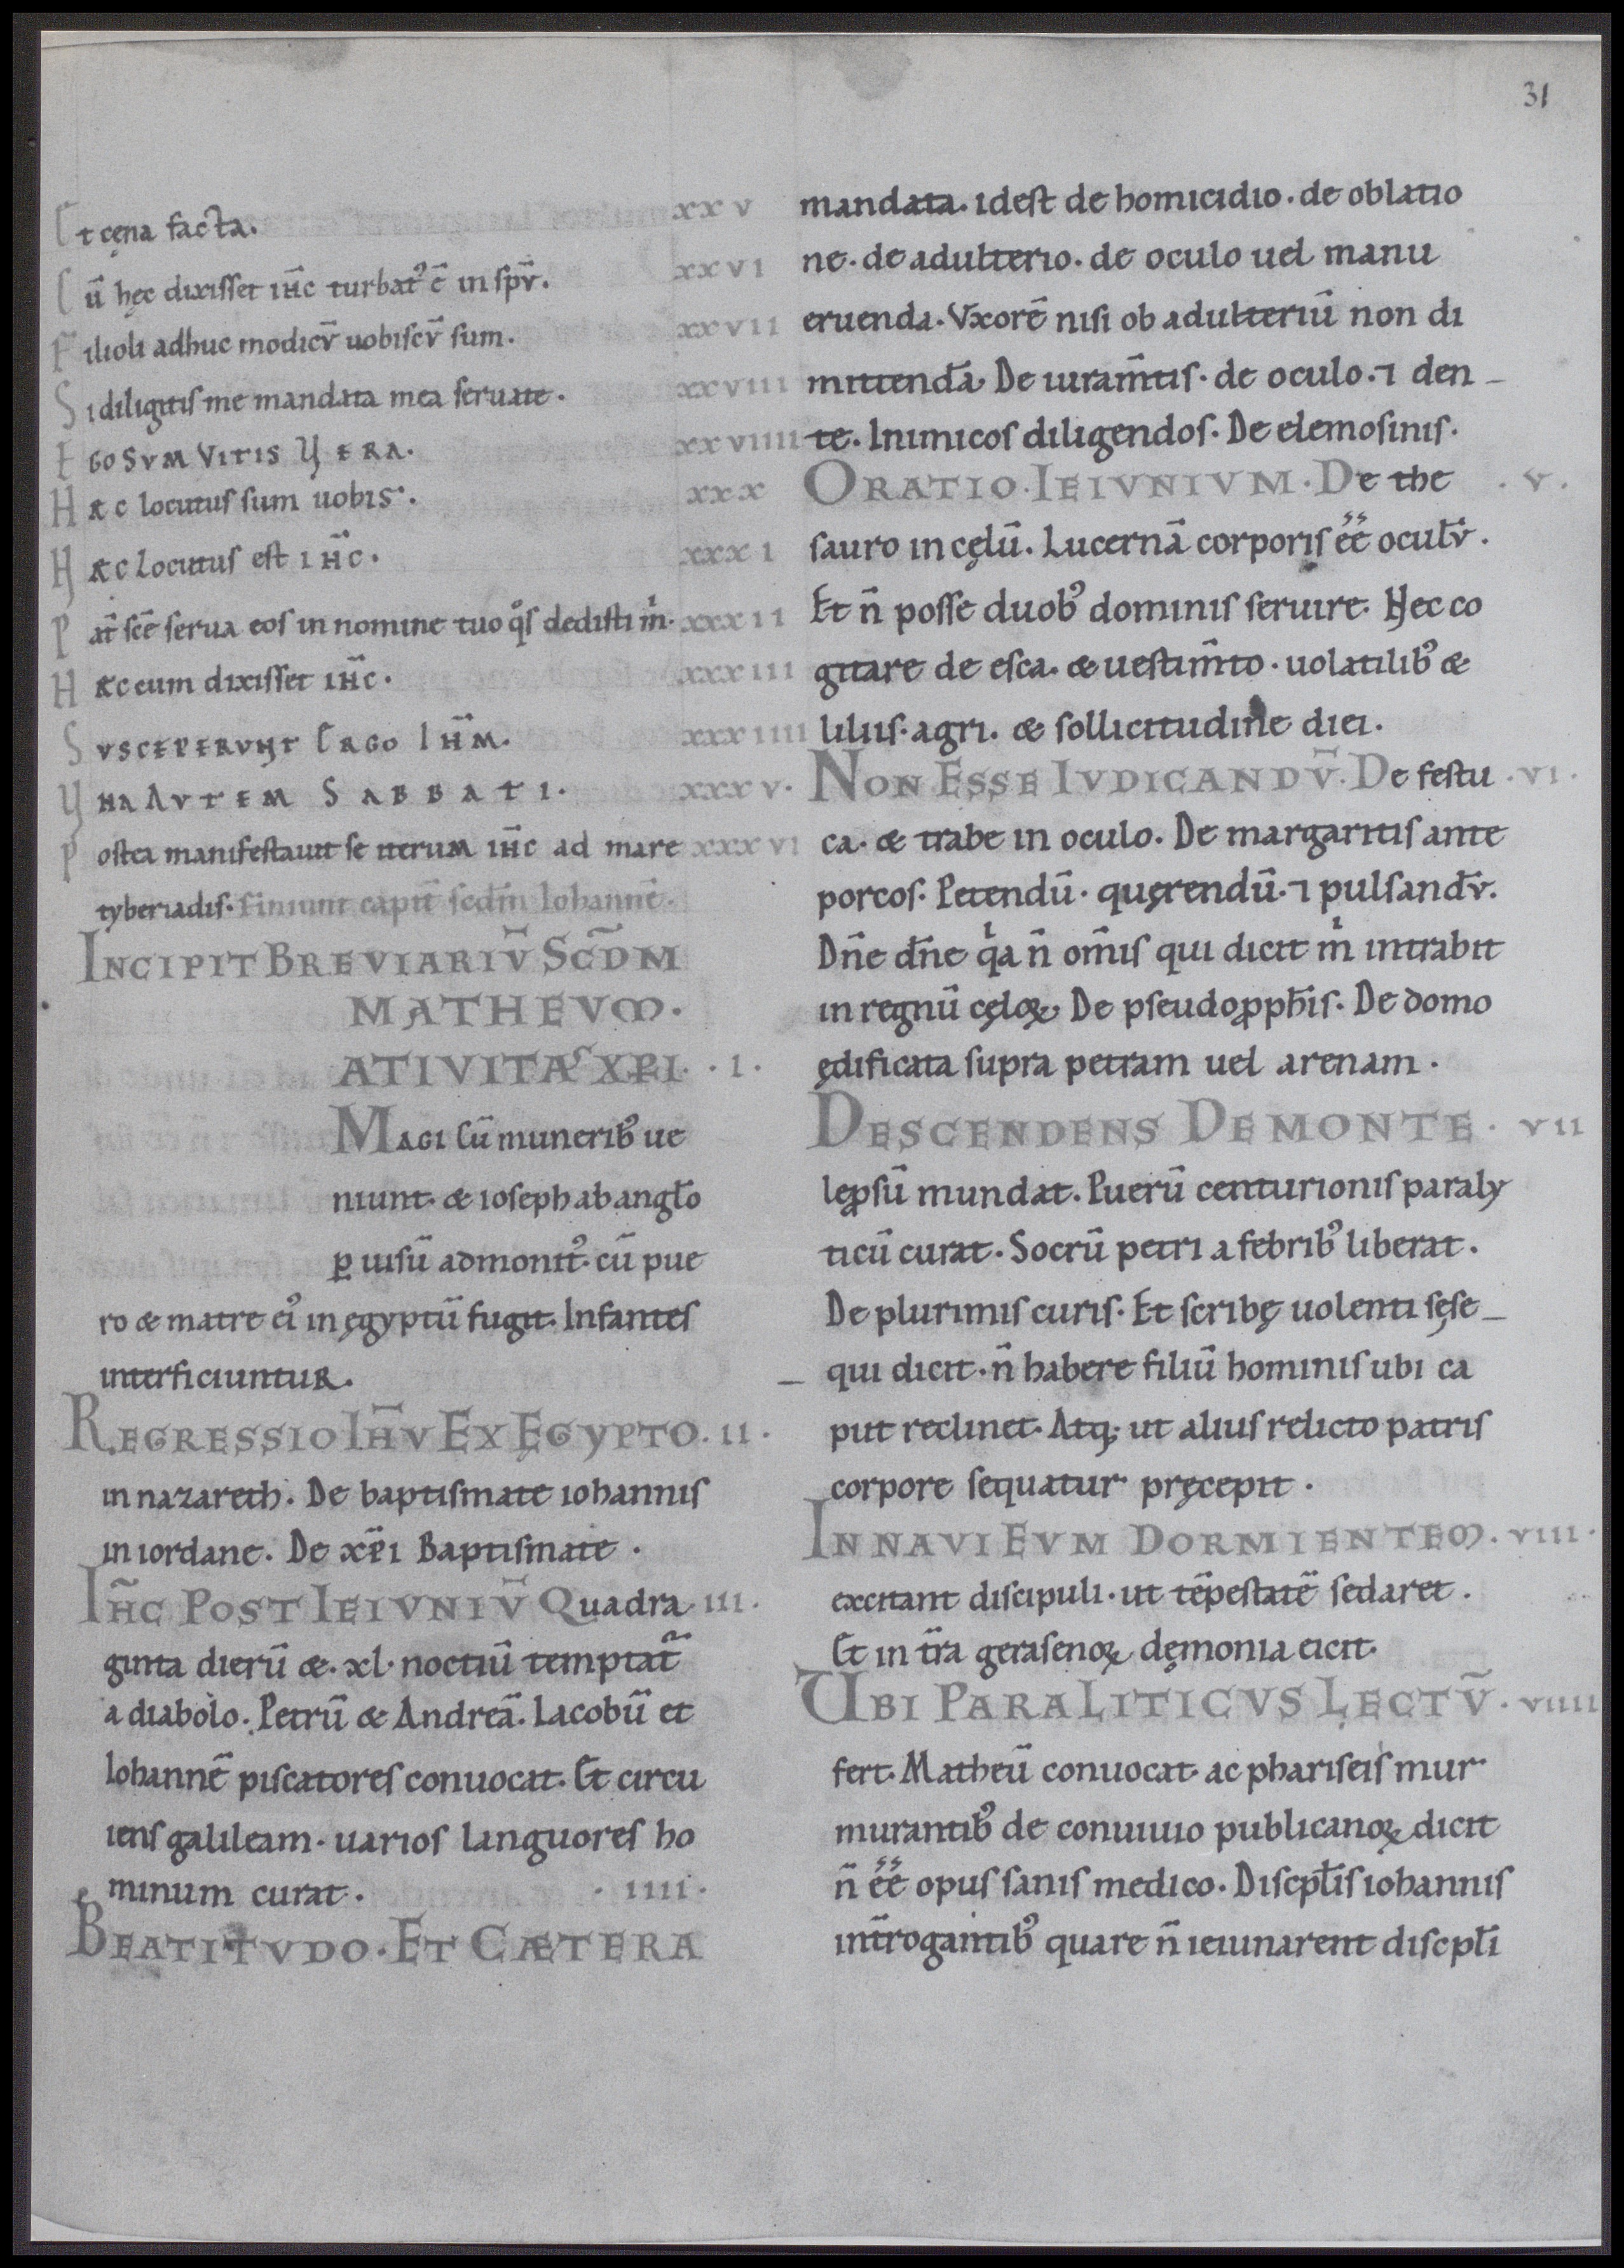 31
Et cęna facta. xxv
Cū hęc dixisset ihc̄ turbat᾿ ē in spv̄. xxvi
Filioli adhuc modicv̄ uobiscv̄ sum. xxvii
Si diligitis me mandata mea seruate. xxviii
Ego sum vitis vera. xxviiii
Hæc locutus sum uobis. xxx
Hæc locutus est ihc̄. xxxi
Pat̄ scē serua eos in nomine tuo qͦs dedisti m̍. xxxii
Hæc cum dixisset ihc̄. xxxiii
Svsceperunt Ergo Ihm̄. xxxiiii
Vna Avtem Sabbati. xxxv.
Postea manifestauit se iterum ihc̄ ad mare xxxvi
tyberiadis. finiunt capit̄ scdm̄ Iohannē.
Incipit Breviariv̄ Scd̄m
Mathevm.
Ativitas Xp̄i. .i.
Magi Cū munerib᾿ ue
niunt. & ioseph ab angło
ꝑ uisū admonit᾿. cū pue
ro & matre ei᾿ in ęgyptū fugit. Infantes
interficiuntur.
Regressio Ihv̄ Ex Egypto. ii.
in nazareth. De baptismate iohannis
in iordane. De xp̄i Baptismate.
Ihc̄ Post Ieivniv̄ Quadra iii.
ginta dierū &. xl. noctiū temptat᷑
a diabolo. Petrū & Andreā. Iacobū et
Iohannē piscatores conuocat. Et circu
iens galileam. uarios languores ho
minum curat. .iiii.
Beatitvdo. Et Cætera
mandata. idest de homicidio. de oblatio
ne. de adulterio. de oculo uel manu
eruenda. Vxorē nisi ob adulteriū non di
mittendā. De iuram̄tis. de oculo. ⁊ den_
te. Inimicos diligendos. De elemosinis.
Oratio. Ieivnivm. De the .v.
sauro in cęlū. Lucernā corporis ēē oculv̄.
Et n̄ posse duob᾿ dominis seruire. Hec co
gitare de esca. & uestim̄to. uolatilib᾿ &
liliis. agri. & sollicitudine diei.
Non Esse Ivdicandv̄. De festu .vi.
ca. & trabe in oculo. De margaritis ante
porcos. Petendū. quęrendū. ⁊ pulsandv̄.
Dn̄e dn̄e qͥa n̄ om̄is qui dicit m̍ intrabit
in regnū cęloꝝ. De pseudoꝓph̄is. De domo
ędificata supra petram uel arenam.
Descendens De Monte. vii
leꝓsū mundat. Puerū centurionis paraly
ticū curat. Socrū petri a febrib᾿ liberat.
De plurimis curis. Et scribę uolenti sęse_
_ qui dicit. n̄ habere filiū hominis ubi ca
put reclinet. Atq; ut alius relicto patris
corpore sequatur pręcepit.
In navi Evm dormientem. viii.
excitant discipuli. ut tēpestatē sedaret.
Et in tr̄a gerasenoꝝ dęmonia eicit.
Ubi Paraliticvs Lectv̄. viiii
fert. Matheū conuocat. ac phariseis mur
murantib᾿ de conuiuio publicanoꝝ dicit
n̄ ēē opus sanis medico. Discipłis iohannis
int̄rogantib᾿ quare n̄ ieiunarent discipłi